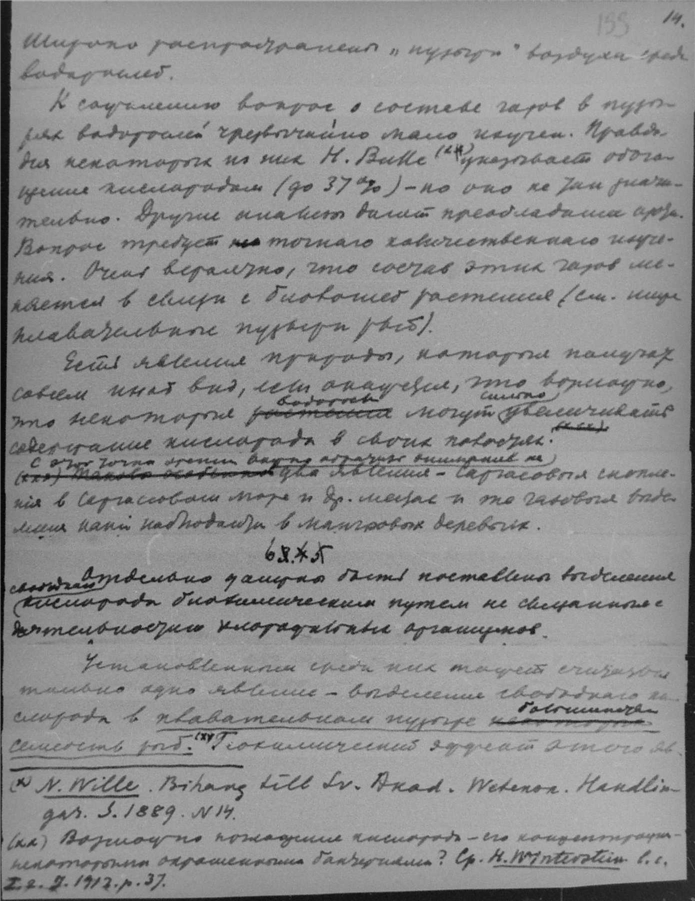 133 14.
Широко распространены „пузыри“ воздуха среди
водорослей.
К сожалению вопрос о составе газов в пузы-
рях водорослей чрезвычайно мало изучен. Правда
для некоторых из них Н. Вилле (xx) указывает обога-
щение кислородом (до 37%) – но оно не так значи-
тельно. Другие анализы дают преобладание
Вопрос требует точного количественного изуче-
ния. Очень вероятно, что состав этих газов ме-
няется в связи с биологией растения (см. ниже
плавательные пузыри рыб).
Есть явления природы, которые получат
совсем иной вид, если окажется, что вероятно,
водоросли сильно
что некоторые растения могут увеличивать
содержание кислорода в своих полостях. (xxx)
С этой точки зрения обратить внимание на
(xxx) Таковы особенно два явления – саргассовые скопле-
нія в Саргассовом море и др. местах и те газовые выде-
ления какие наблюдаются в мангровых деревьях.
68.
Отдельно должны быть поставлены выделения
свободного
кислорода биохимическим путем не связанные с
деятельностью хлорофилльных организмов.
Установленным среди них может считаться
только одно явление – выделение свободного ки-
слорода в плавательном пузыре некоторых
большинства
семейств рыб. (xx) Геохимический эффект этого яв-
(x) N. Wille. Bihang till Sv. Akad. Vetensk. Handlin-
gar. S. 1889. N 14.
(xx) Возможно поглощение кислорода – его концентрация
некоторыми окрашенными бактериями? Ср. H. Winterstein l. c.
I. 2. J. 1912. p. 37.